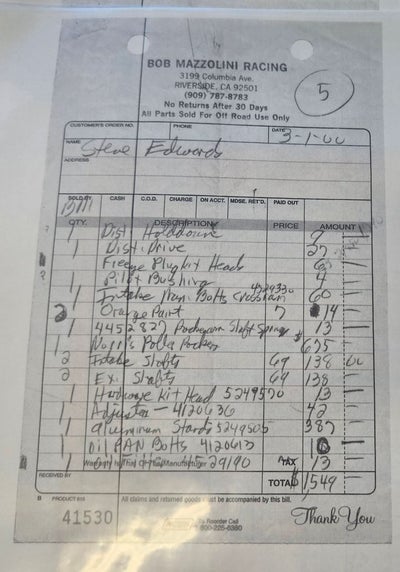 BOB MAZZOLINI RACING
3199 Columbia Ave.
RIVERSIDE, CA 92501
(909) 787-8783
No Returns After 30 Days
All Parts Sold For Off Road Use Only
5
CUSTOMER'S ORDER NO. PHONE DATE 3-1-00
NAME Steve Edwards
ADDRESS
SOLD BY CASH C.O.D. CHARGE ON ACCT. MDSE. RET'D. PAID OUT
Bill
QTY. DESCRIPTION PRICE AMOUNT
1 Dist Holddown
1 Dist. Drive 27
Freeze Plug Kit Heads
Pilot Bushing 4
4529330
1 Intake Man. Bolts Crossram 60
2 Orange Paint 7 14
1 4452827 Rockerarm Shaft Springs 13
1 Norris Rolla Rockers 675
2 Intake Shafts 69 138 00
2 Ex. Shafts 69 138
1 Hardware Kit Head 5249570 13
1 Adjustor - 4120636 42
1 Aluminum Stands 5249505 387
1 Oil PAN Bolts 4120613
29190 TAX 13
RECEIVED BY TOTAL $1,549
B PRODUCT 610 All claims and returned goods must be accompanied by this bill.
41530 To Reorder Call Thank You
800-225-6380